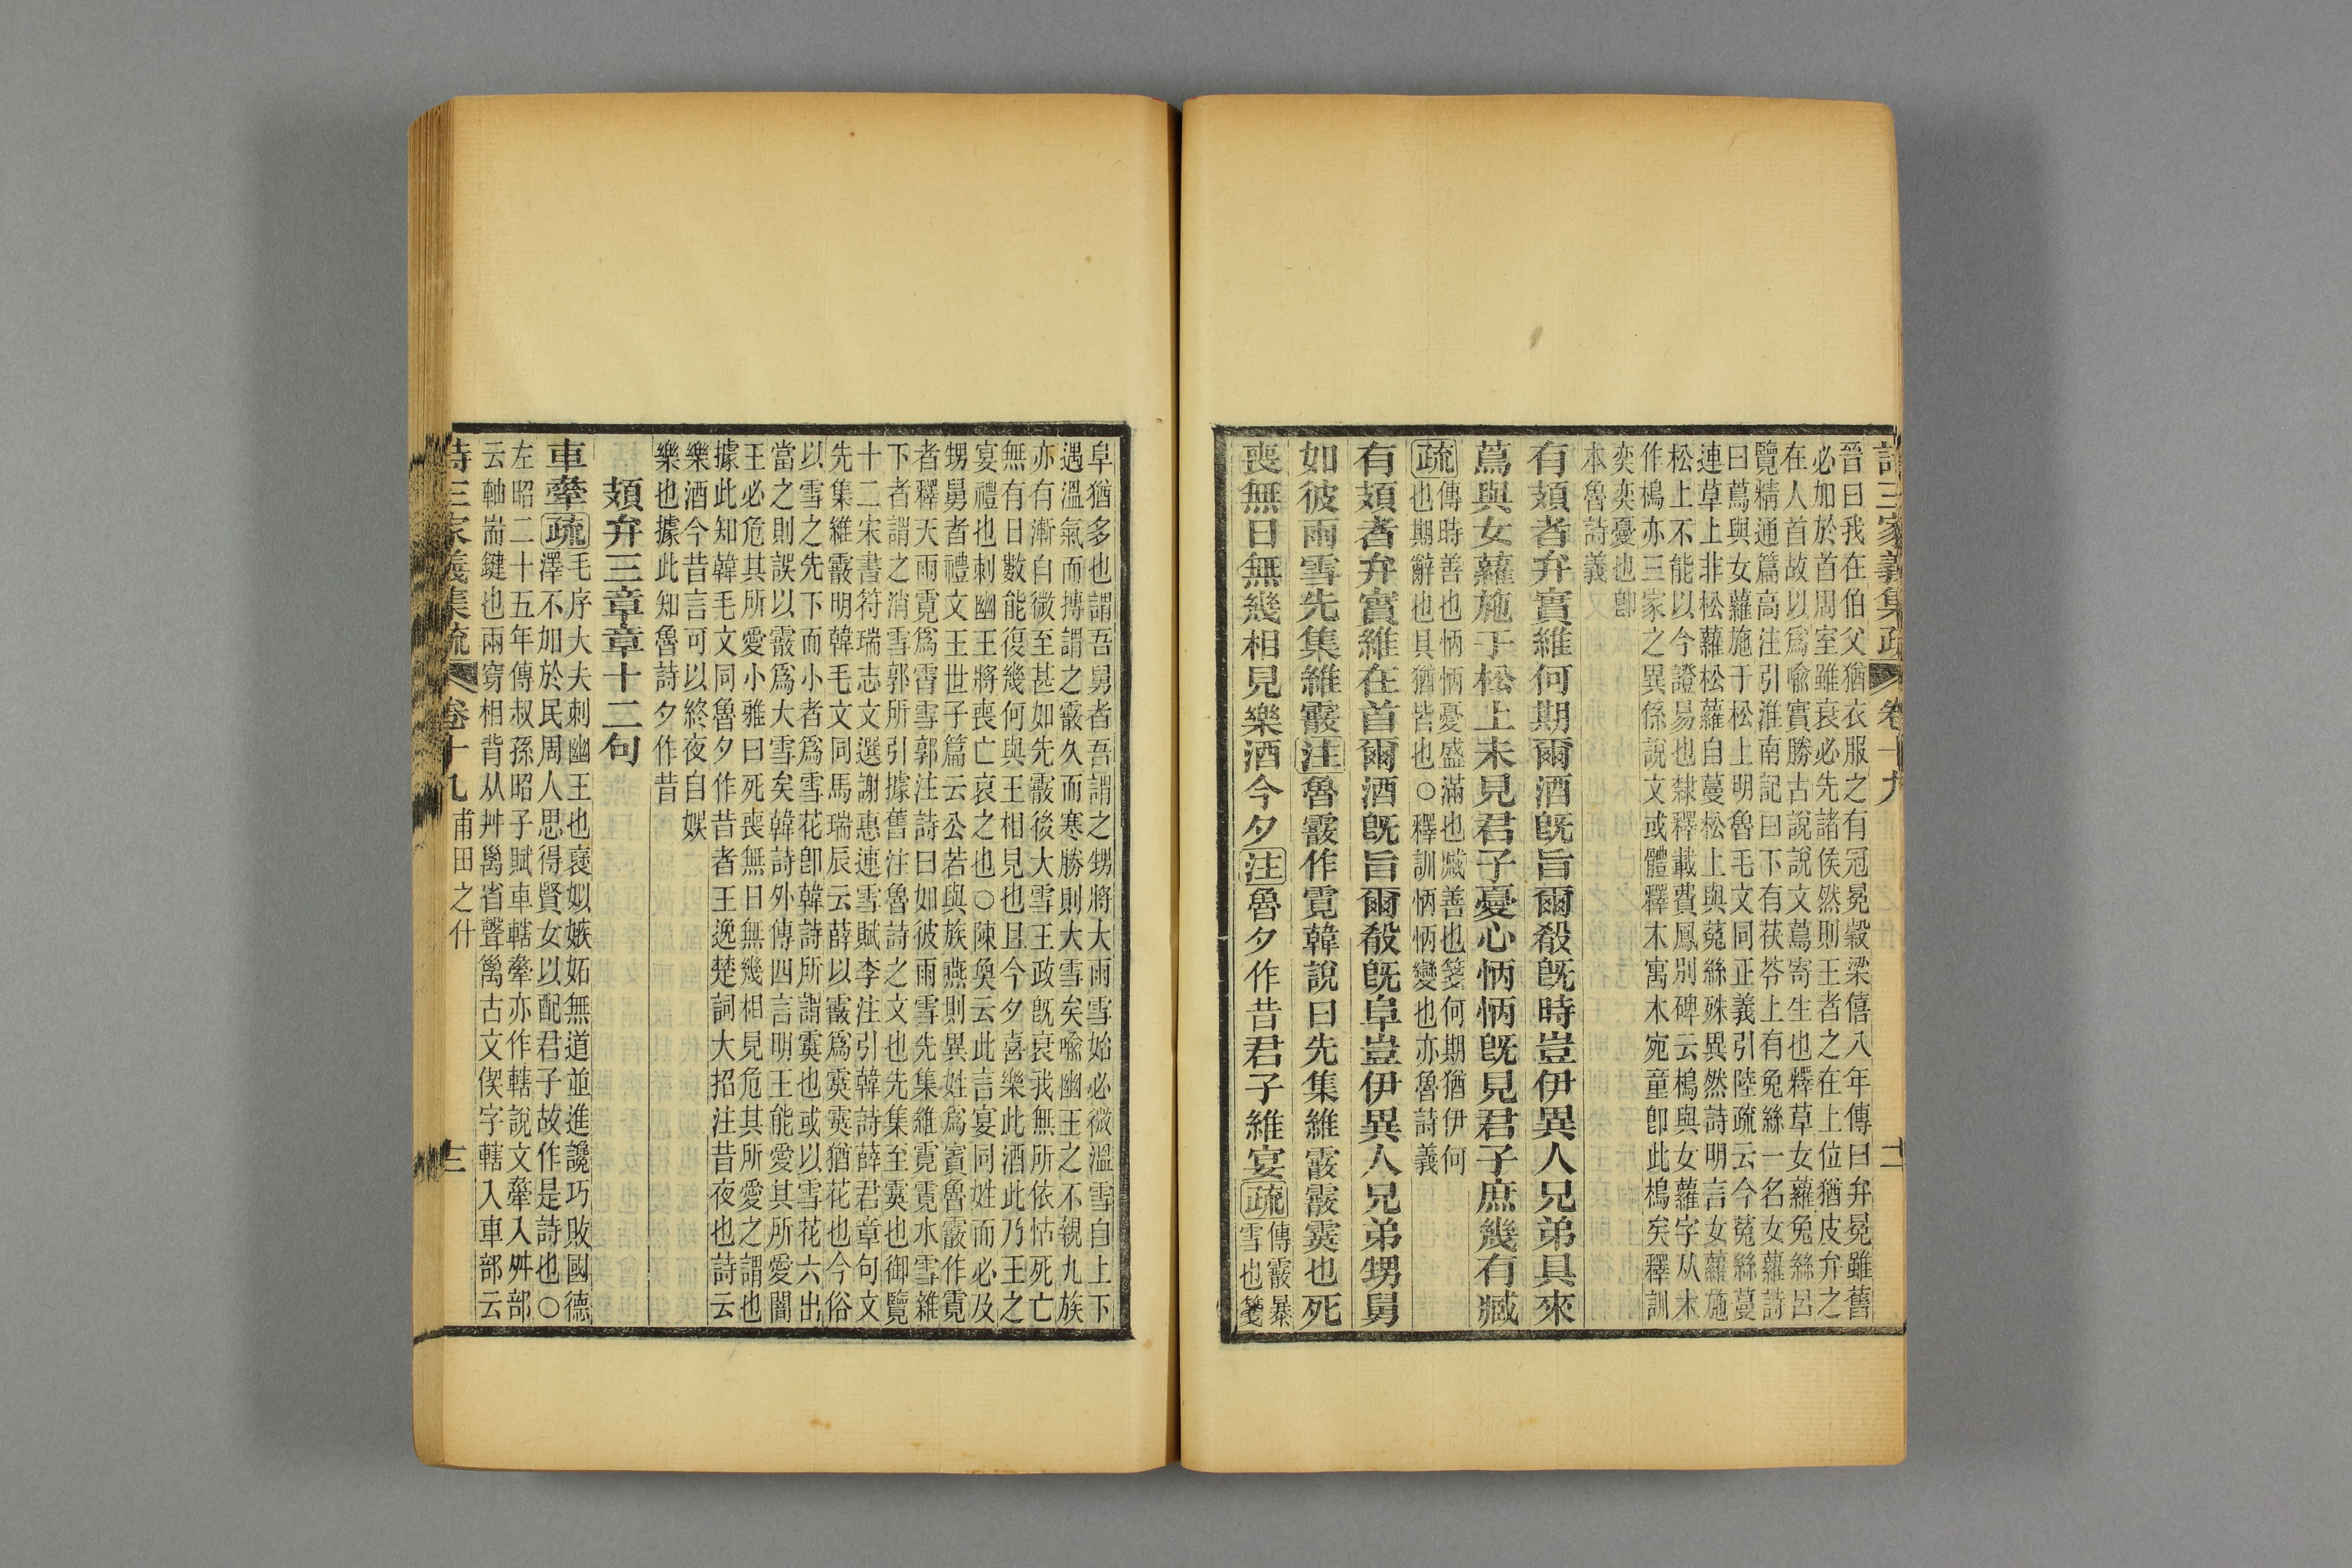 詩三家義集疏 卷十九 十二
晉曰我在伯父猶衣服之有冠冕穀梁僖八年傳曰弁冕雖舊
必加於首周室雖衰必先諸侯然則王者之在上位猶皮弁之
在人首故以爲喻實勝古說說文蔦寄生也釋草女蘿兔絲呂
覽精通篇高注引淮南記曰下有茯苓上有兔絲一名女蘿詩
曰蔦與女蘿施于松上明魯毛文同正義引陸疏云今菟絲蔓
連草上非松蘿松蘿自蔓松上與菟絲殊異然詩明言女蘿施
松上不能以今證易也隸釋載費鳳別碑云樢與女蘿字从木
作樢亦三家之異係說文或體釋木寓木宛童卽此樢矣釋訓
奕奕憂也卽
本魯詩義
有頍者弁實維何期爾酒旣旨爾殽旣時豈伊異人兄弟具來
蔦與女蘿施于松上未見君子憂心怲怲旣見君子庶幾有臧
疏傳時善也怲怲憂盛滿也臧善也箋何期猶伊何
也期辭也具猶皆也○釋訓怲怲變也亦魯詩義
有頍者弁實維在首爾酒旣旨爾殽旣阜豈伊異人兄弟甥舅
如彼雨雪先集維霰注魯霰作霓韓說曰先集維霰霰霙也死
喪無日無幾相見樂酒今夕注魯夕作昔君子維宴疏傳霰暴
雪也箋
阜猶多也謂吾舅者吾謂之甥將大雨雪始必微溫雪自上下
遇溫氣而摶謂之霰久而寒勝則大雪矣喻幽王之不親九族
亦有漸自微至甚如先霰後大雪王政旣衰我無所依怙死亡
無有日數能復幾何與王相見也且今夕喜樂此酒此乃王之
宴禮也刺幽王將喪亡哀之也○陳奐云此言宴同姓而必及
甥舅者禮文王世子篇云公若與族燕則異姓爲賓魯霰作霓
者釋天雨霓爲霄雪郭注詩曰如彼雨雪先集維霓霓水雪雜
下者謂之消雪郭所引據舊注魯詩之文也先集至霙也御覽
十二宋書符瑞志文選謝惠連雪賦李注引韓詩薛君章句文
先集維霰明韓毛文同馬瑞辰云薛以霰爲霙霙猶花也今俗
以雪之先下而小者爲雪花卽韓詩所謂霙也或以雪花六出
當之則誤以霰爲大雪矣韓詩外傳四言明王能愛其所愛闇
王必危其所愛小雅曰死喪無日無幾相見危其所愛之謂也
據此知韓毛文同魯夕作昔者王逸楚詞大招注昔夜也詩云
樂酒今昔言可以終夜自娛
樂也據此知魯詩夕作昔
頍弁三章章十二句
車舝疏毛序大夫刺幽王也褒姒嫉妬無道並進讒巧敗國德
澤不加於民周人思得賢女以配君子故作是詩也○
左昭二十五年傳叔孫昭子賦車轄舝亦作轄說文舝入舛部
云軸耑鍵也兩穿相背从舛𥝢省聲𥝢古文偰字轄入車部云
詩三家義集疏 卷十九 甫田之什 三